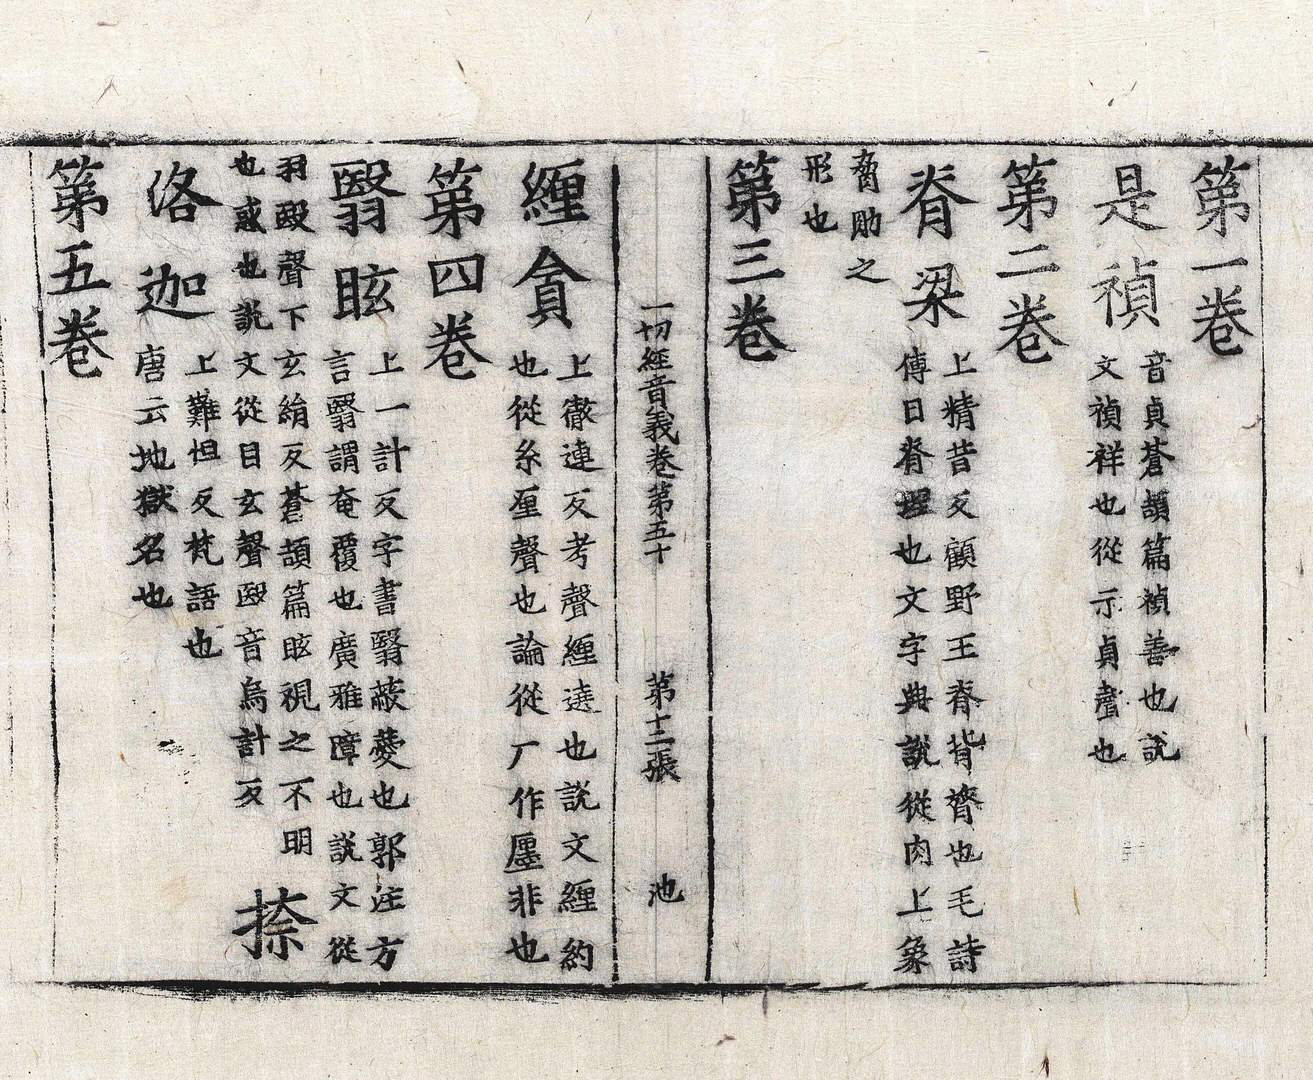 第一卷
是禎
音貞蒼頡篇禎善也說
文禎祥也從示貞聲也
第二卷
脊梁
上精昔反顧野王脊背膂也毛詩
傳曰脊理也文字典說從肉上象
脅肋之
形也
第三卷
一切經音義卷第五十 第十二張 池
纏貪
上徹連反考聲纏遶也說文纏約
也從糸㕓聲也論從厂作㕓非也
第四卷
翳眩
上一計反字書翳蔽薆也郭注方
言翳謂奄覆也廣雅障也說文從
羽殹聲下玄絹反蒼頡篇眩視之不明
也惑也說文從目玄聲殹音烏計反
捺
洛迦
上難怛反梵語也
唐云地獄名也
第五卷